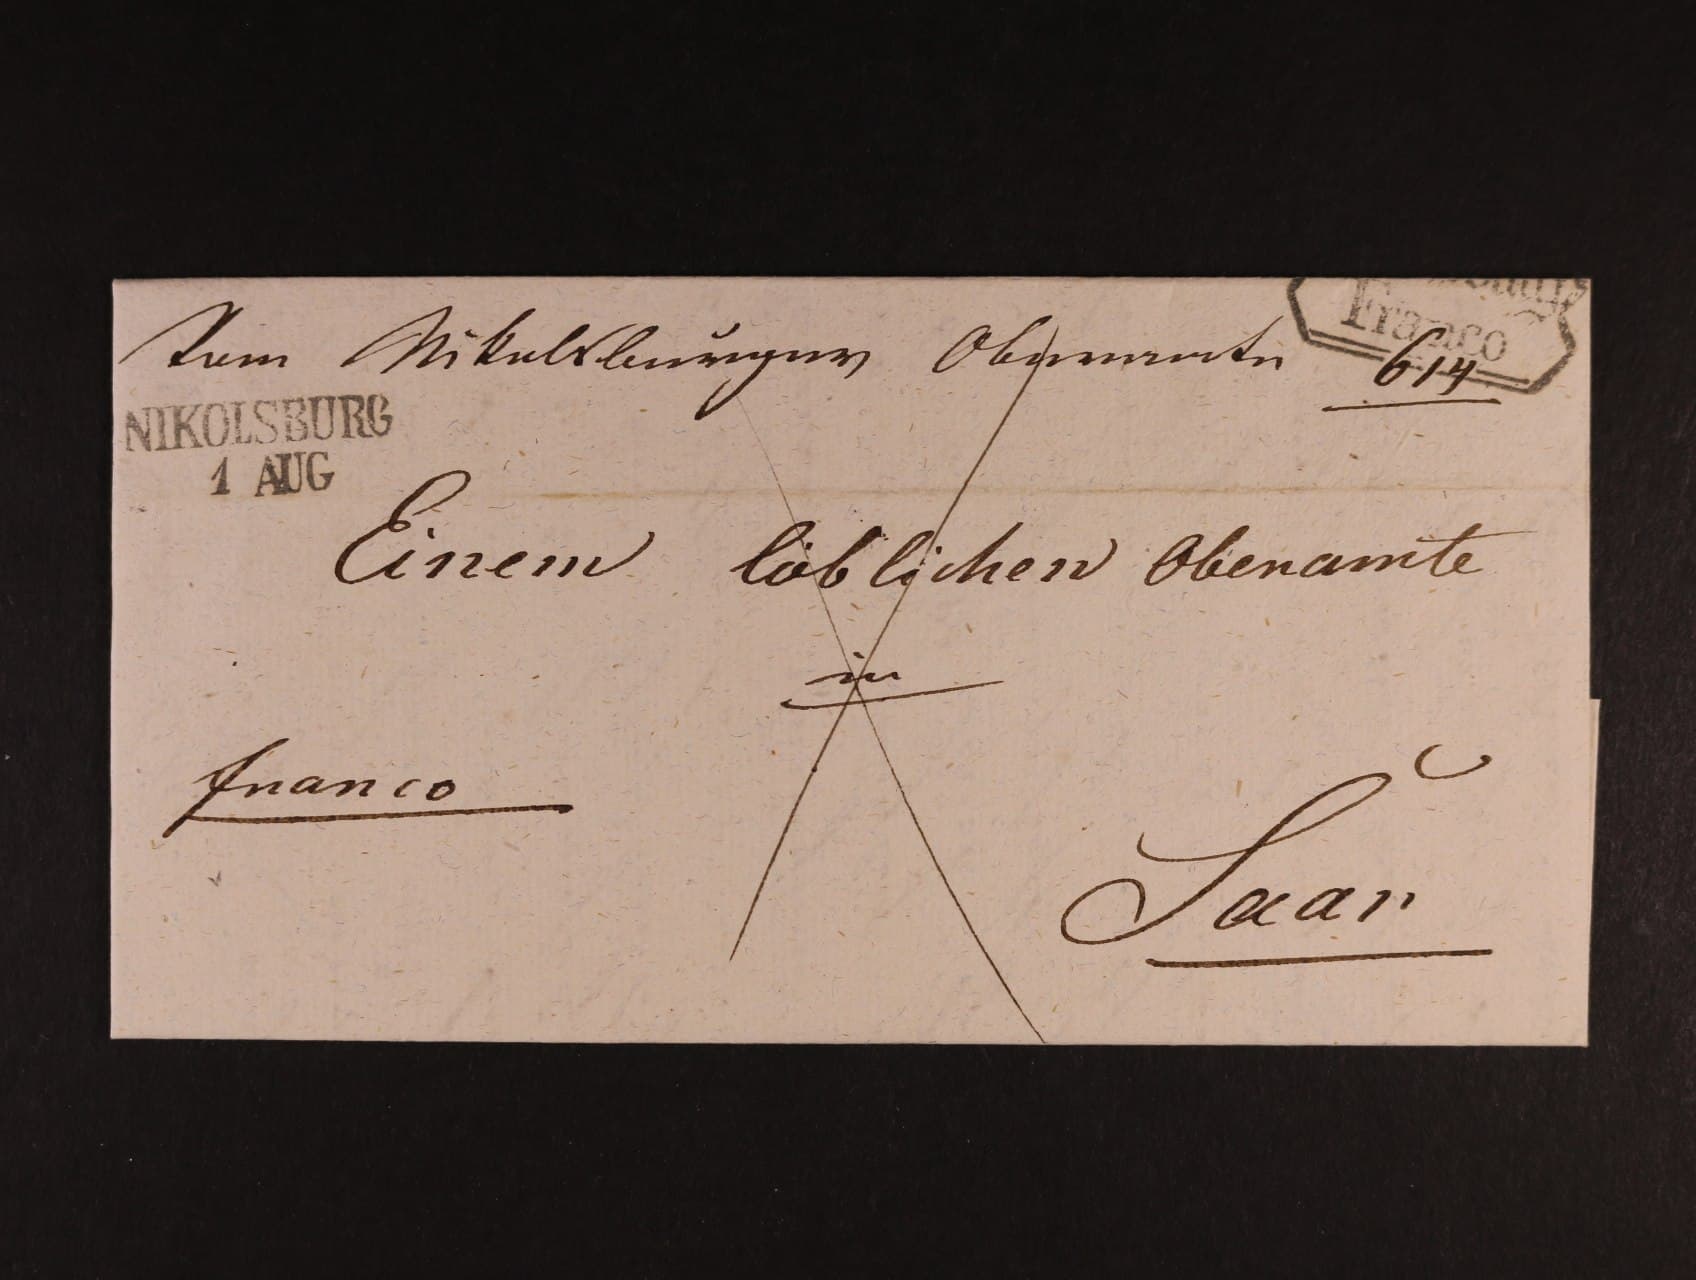 Vom Nikolsburger Oberamte 614
Franco
NIKOLSBURG
1 AUG
Einem löblichen Oberamte
in
franco
Saar